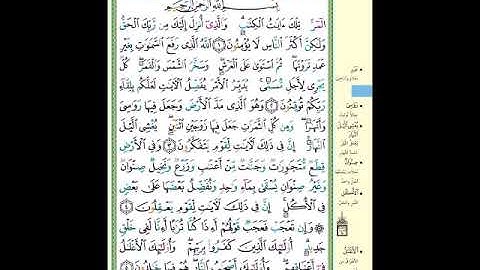 بِسْمِ ٱللَّهِ ٱلرَّحْمَٰنِ ٱلرَّحِيمِ
الٓمٓر تِلْكَ ءَايَٰتُ ٱلْكِتَٰبِ وَٱلَّذِىٓ أُنزِلَ إِلَيْكَ مِن رَّبِّكَ ٱلْحَقُّ
وَلَٰكِنَّ أَكْثَرَ ٱلنَّاسِ لَا يُؤْمِنُونَ ١ ٱللَّهُ ٱلَّذِى رَفَعَ ٱلسَّمَٰوَٰتِ بِغَيْرِ
عَمَدٍ تَرَوْنَهَا ثُمَّ ٱسْتَوَىٰ عَلَى ٱلْعَرْشِ وَسَخَّرَ ٱلشَّمْسَ وَٱلْقَمَرَ كُلٌّ
يَجْرِى لِأَجَلٍ مُّسَمًّى يُدَبِّرُ ٱلْأَمْرَ يُفَصِّلُ ٱلْءَايَٰتِ لَعَلَّكُم بِلِقَآءِ
رَبِّكُمْ تُوقِنُونَ ٢ وَهُوَ ٱلَّذِى مَدَّ ٱلْأَرْضَ وَجَعَلَ فِيهَا رَوَٰسِىَ
وَأَنْهَٰرًا وَمِن كُلِّ ٱلثَّمَرَٰتِ جَعَلَ فِيهَا زَوْجَيْنِ ٱثْنَيْنِ يُغْشِى ٱلَّيْلَ
ٱلنَّهَارَ إِنَّ فِى ذَٰلِكَ لَءَايَٰتٍ لِّقَوْمٍ يَتَفَكَّرُونَ ٣ وَفِى ٱلْأَرْضِ
قِطَعٌ مُّتَجَٰوِرَٰتٌ وَجَنَّٰتٌ مِّنْ أَعْنَٰبٍ وَزَرْعٌ وَنَخِيلٌ صِنْوَانٌ
وَغَيْرُ صِنْوَانٍ يُسْقَىٰ بِمَآءٍ وَٰحِدٍ وَنُفَضِّلُ بَعْضَهَا عَلَىٰ بَعْضٍ
فِى ٱلْأُكُلِ إِنَّ فِى ذَٰلِكَ لَءَايَٰتٍ لِّقَوْمٍ يَعْقِلُونَ ٤
وَإِن تَعْجَبْ فَعَجَبٌ قَوْلُهُمْ أَءِذَا كُنَّا تُرَٰبًا أَءِنَّا لَفِى خَلْقٍ
جَدِيدٍ أُو۟لَٰٓئِكَ ٱلَّذِينَ كَفَرُوا۟ بِرَبِّهِمْ وَأُو۟لَٰٓئِكَ ٱلْأَغْلَٰلُ
فِىٓ أَعْنَاقِهِمْ وَأُو۟لَٰٓئِكَ أَصْحَٰبُ ٱلنَّارِ هُمْ فِيهَا خَٰلِدُونَ ٥